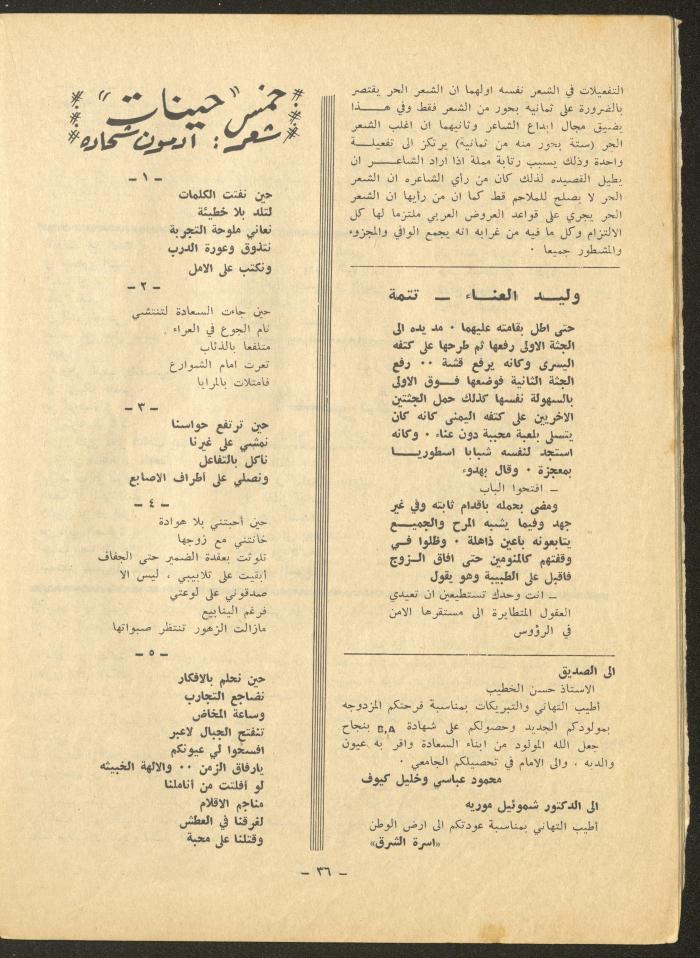 التفعيلات في الشعر نفسه اولهما ان الشعر الحر يقتصر
بالضرورة على ثمانيه بحور من الشعر فقط وفي هـــذا
يضيق مجال ابداع الشاعر وثانيهما ان اغلب الشعر
الحر (ستة بحور منه من ثمانية) يرتكز الى تفعيلــة
واحدة وذلك يسبب رتابة مملة اذا اراد الشاعـــر ان
يطيل القصيده لذلك كان من رأي الشاعره ان الشعر
الحر لا يصلح للملاحم قط كما ان من رأيها ان الشعر
الحر يجري على قواعد العروض العربي ملتزما لها كل
الالتزام وكل ما فيه من غرابه انه يجمع الوافي والمجزوء
والمشطور جميعا ٠
وليـد العنـاء ــ تتمة
حتى اطل بقامته عليهما ٠ مد يده الى
الجثة الاولى رفعها ثم طرحها على كتفه
اليسرى وكانه يرفع قشة ٠٠ رفع
الجثة الثانية فوضعها فــوق الاولى
بالسهولة نفسها كذلك حمل الجثتين
الاخريين على كتفه اليمنى كانه كان
يتسلى بلعبة محببة دون عناء ٠ وكانه
استجد لنفسه شبابا اسطوريــا
بمعجزة ٠ وقال بهدوء
ــ افتحوا الباب
ومضى بحمله باقدام ثابته وفي غير
جهد وفيما يشبه المرح والجميــع
يتابعونه باعين ذاهلة ٠ وظلوا فــي
وقفتهم كالمنومين حتى افاق الـزوج
فاقبل على الطبيبة وهو يقول
ــ انت وحدك تستطيعين ان تعيدي
العقول المتطايرة الى مستقرها الامن
في الرؤوس
الى الصديق
الاستاذ حسن الخطيب
أطيب التهاني والتبريكات بمناسبة فرحتكم المزدوجه
بمولودكم الجديد وحصولكم على شهادة B.A بنجاح
جعل الله المولود من ابناء السعادة واقر به عيون
والديه ، والى الامام في تحصيلكم الجامعي ٠
محمود عباسي وخليل كيوف
الى الدكتور شموئيل موريه
أطيب التهاني بمناسبة عودتكم الى ارض الوطن
«اسرة الشرق»
خمس "حينات"
شعر : ادمون شحاده
ــ ١ ــ
حين نفتت الكلمات
لتلد بلا خطيئة
نعاني ملوحة التجربة
نتذوق وعورة الدرب
ونكتب على الامل
ــ ٢ ــ
حين جاءت السعادة لتنتشي
نام الجوع في العراء .
متلفعا بالذئاب
تعرت امام الشوارع
فامتلات بالمرايا
ــ ٣ ــ
حين ترتفع حواسنا
نمشي على غيرنا
نأكل بالتفاعل
ونصلي على أطراف الاصابع
ــ ٤ ــ
حين أحبتني بلا هوادة
خانتني مع زوجها
تلوثت بعقدة الضمير حتى الجفاف
أبقيت على تلابيبي ، ليس الا
صدقوني على لوعتي
فرغم الينابيع
مازالت الزهور تنتظر صبواتها
ــ ٥ ــ
حين نحلم بالافكار
نضاجع التجارب
وساعة المخاض
تنفتح الجبال لاعبر
افسحوا لي عيونكم
يارفاق الزمن ٠٠ والالهة الخبيثه
لو أفلتت من أناملنا
مناجم الاقلام
لغرقنا في العطش
وقتلنا على محبة
ــ ٣٦ ــ